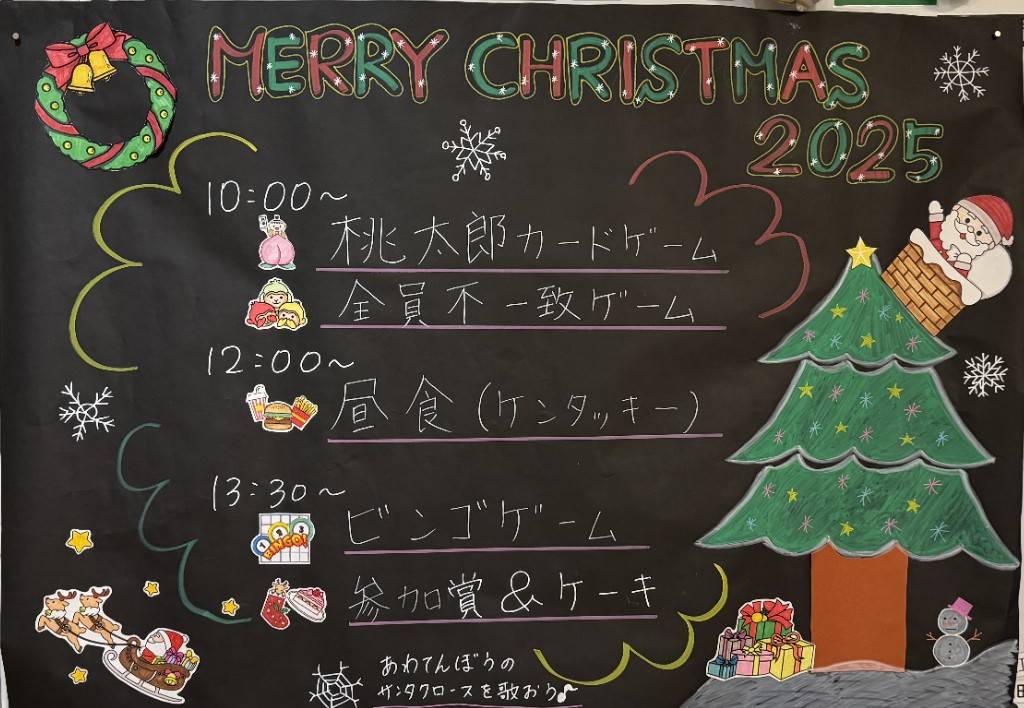 MERRY CHRISTMAS
2025
10:00~
桃太郎カードゲーム
全員不一致ゲーム
12:00~
昼食(ケンタッキー)
13:30~
ビンゴゲーム
1 2 3
BINGO!
参加賞&ケーキ
あわてんぼうの
サンタクロースを歌おう♪